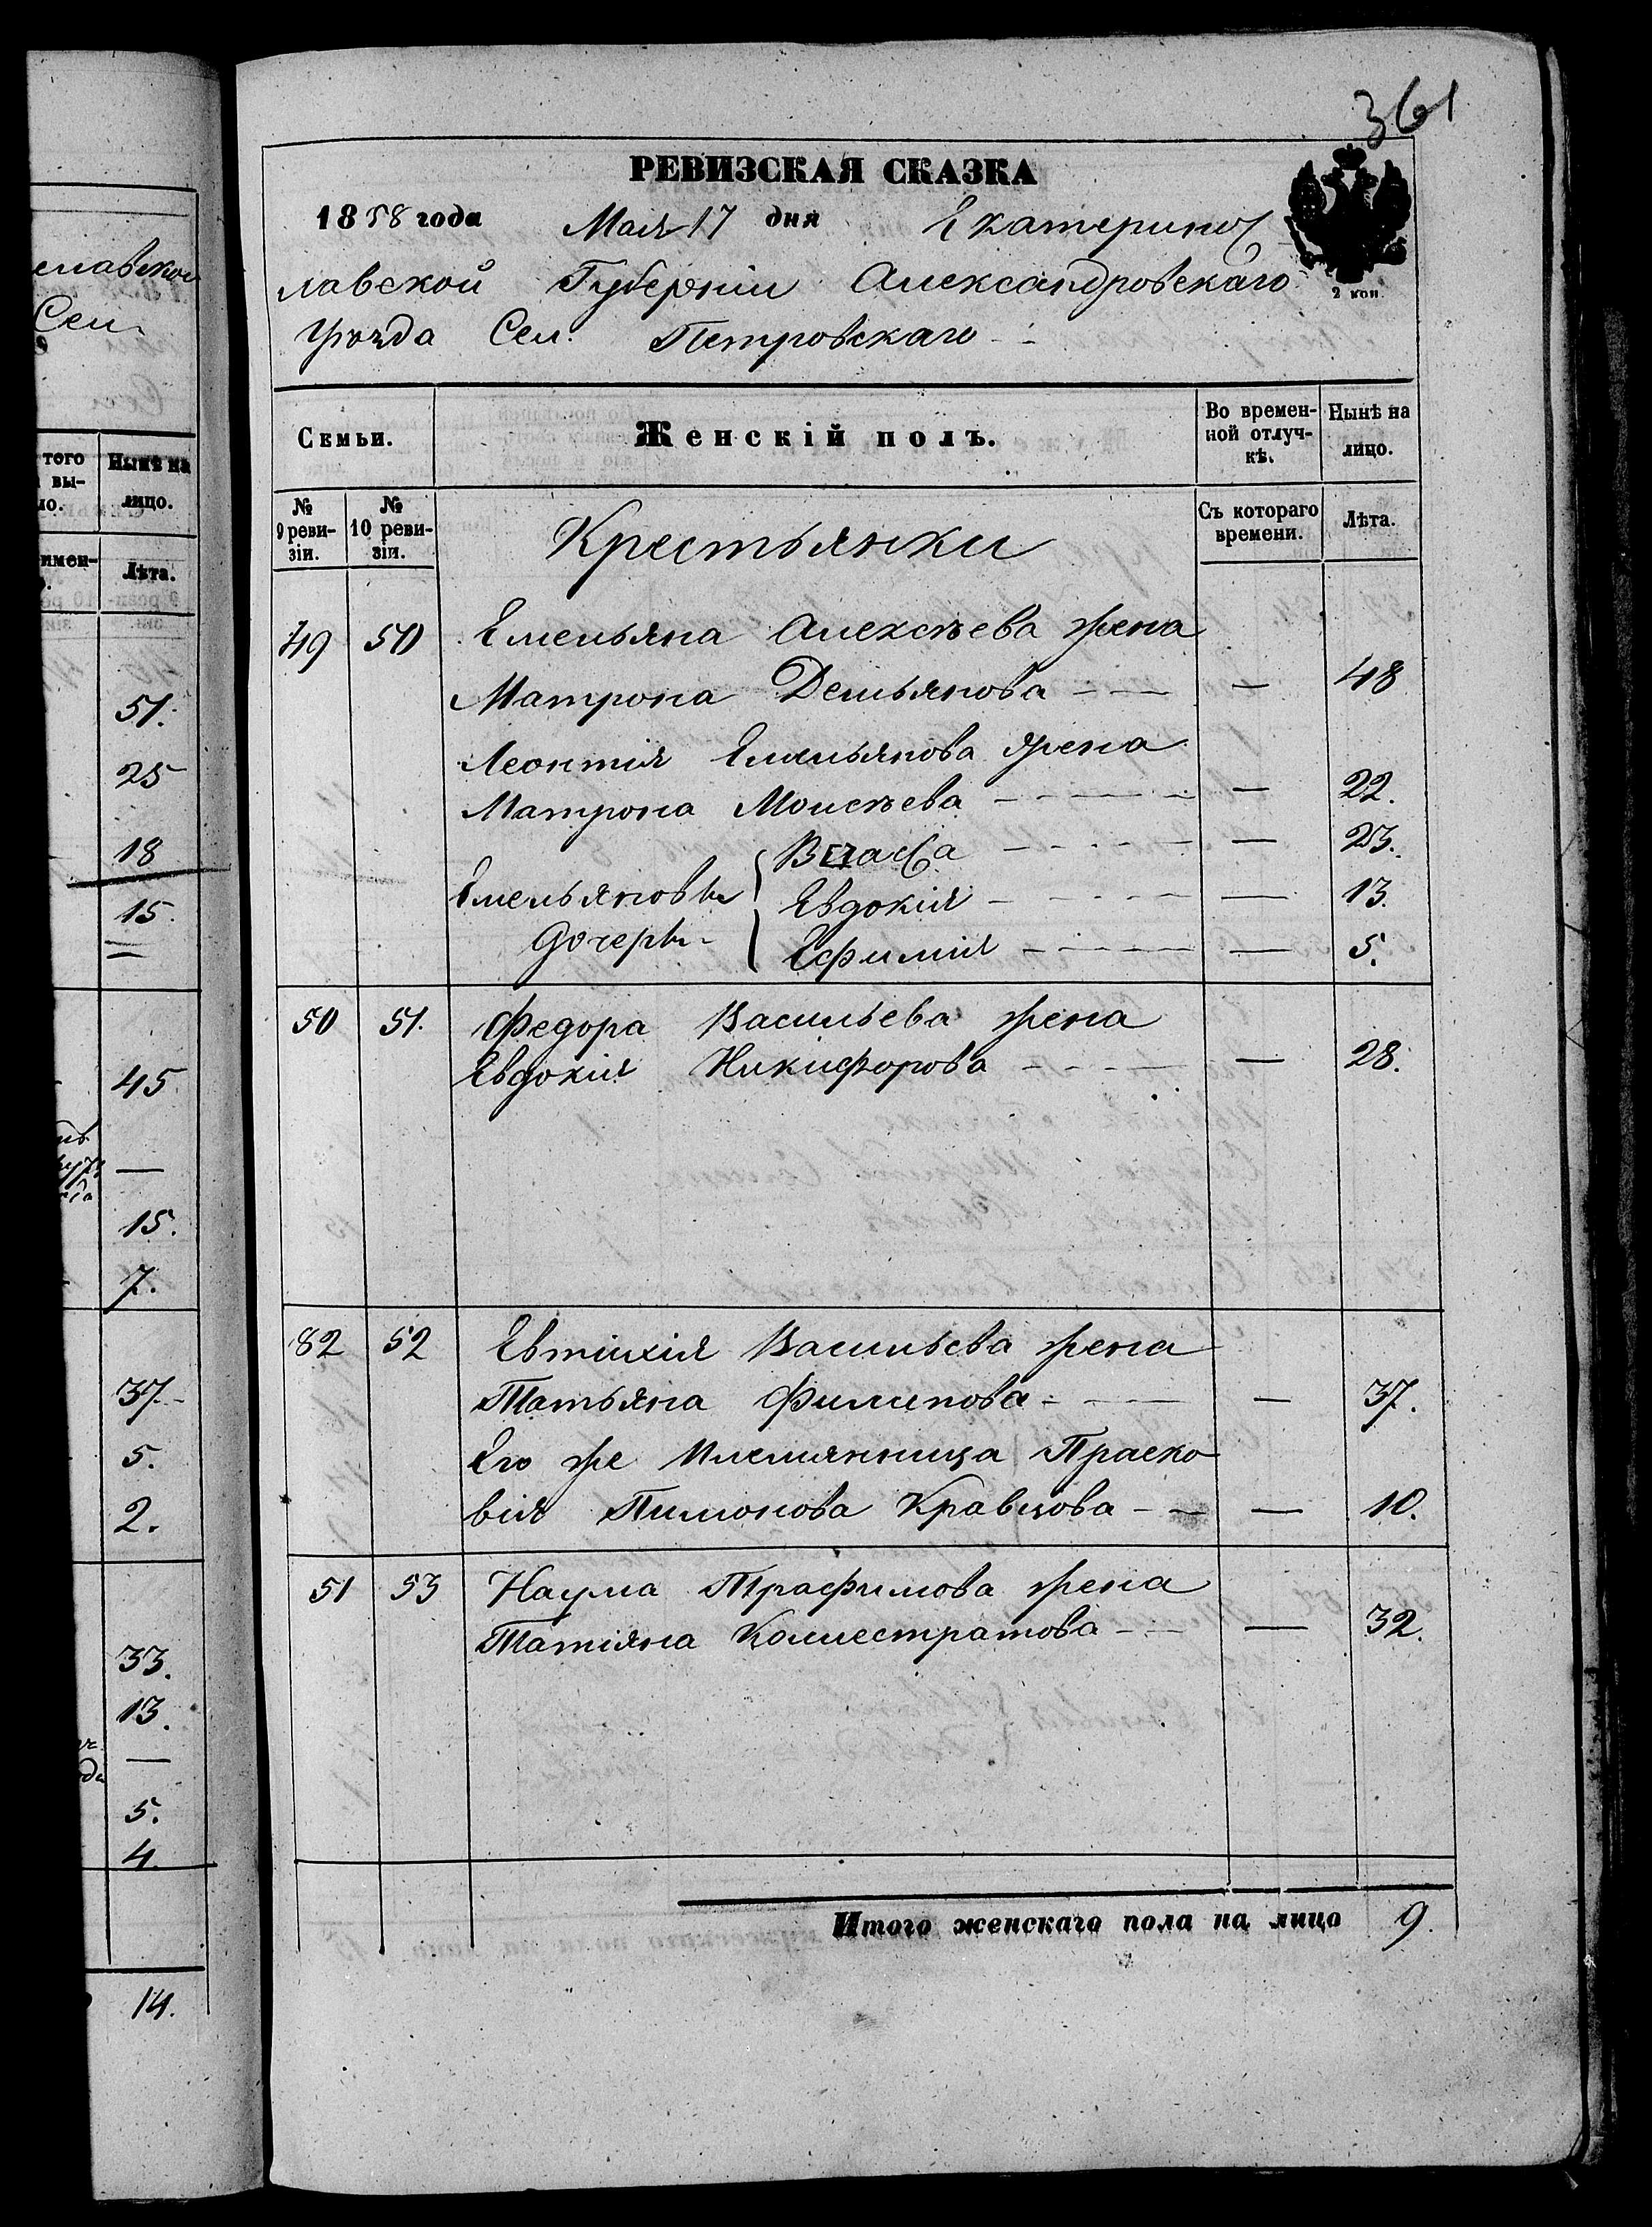 361
РЕВИЗСКАЯ СКАЗКА
1858 года Мая 17 дня Екатеринос
лавской Губерніи Александровскаго
2 коп.
Уѣзда Сел. Петровскаго
Семьи. Женскій полъ. Во времен- Нынѣ на
ной отлуч- лицо.
кѣ.
№ № Съ котораго Лѣта.
9 реви- 10 реви- времени.
зіи. зіи.
Крестьянки
49 50 Емельяна Алексѣева жена
Матрона Демьянова — 48
Леонтія Емельянова жена
Матрона Моисѣева — 22.
Власса — 23.
Емельяновы Евдокія — 13.
Дочери Ефимія — 5.
50 51. Федора Васильева жена
Евдокія Никифорова — 28.
82 52 Евтихія Васильева жена
Татьяна Филипова — 37.
Его же племянница Праско
вія Пимонова Кравцова — 10.
51 53 Наума Трафимова жена
Татіяна Каллестратова — 32.
Итого женскаго пола на лицо 9.
славской
Сел.
того Нынѣ на
вы-
ло. лицо.
имен- Лѣта.
51.
25
18
15.
45
—
15.
7.
37.
5.
2.
33.
13.
—
5.
4.
14.